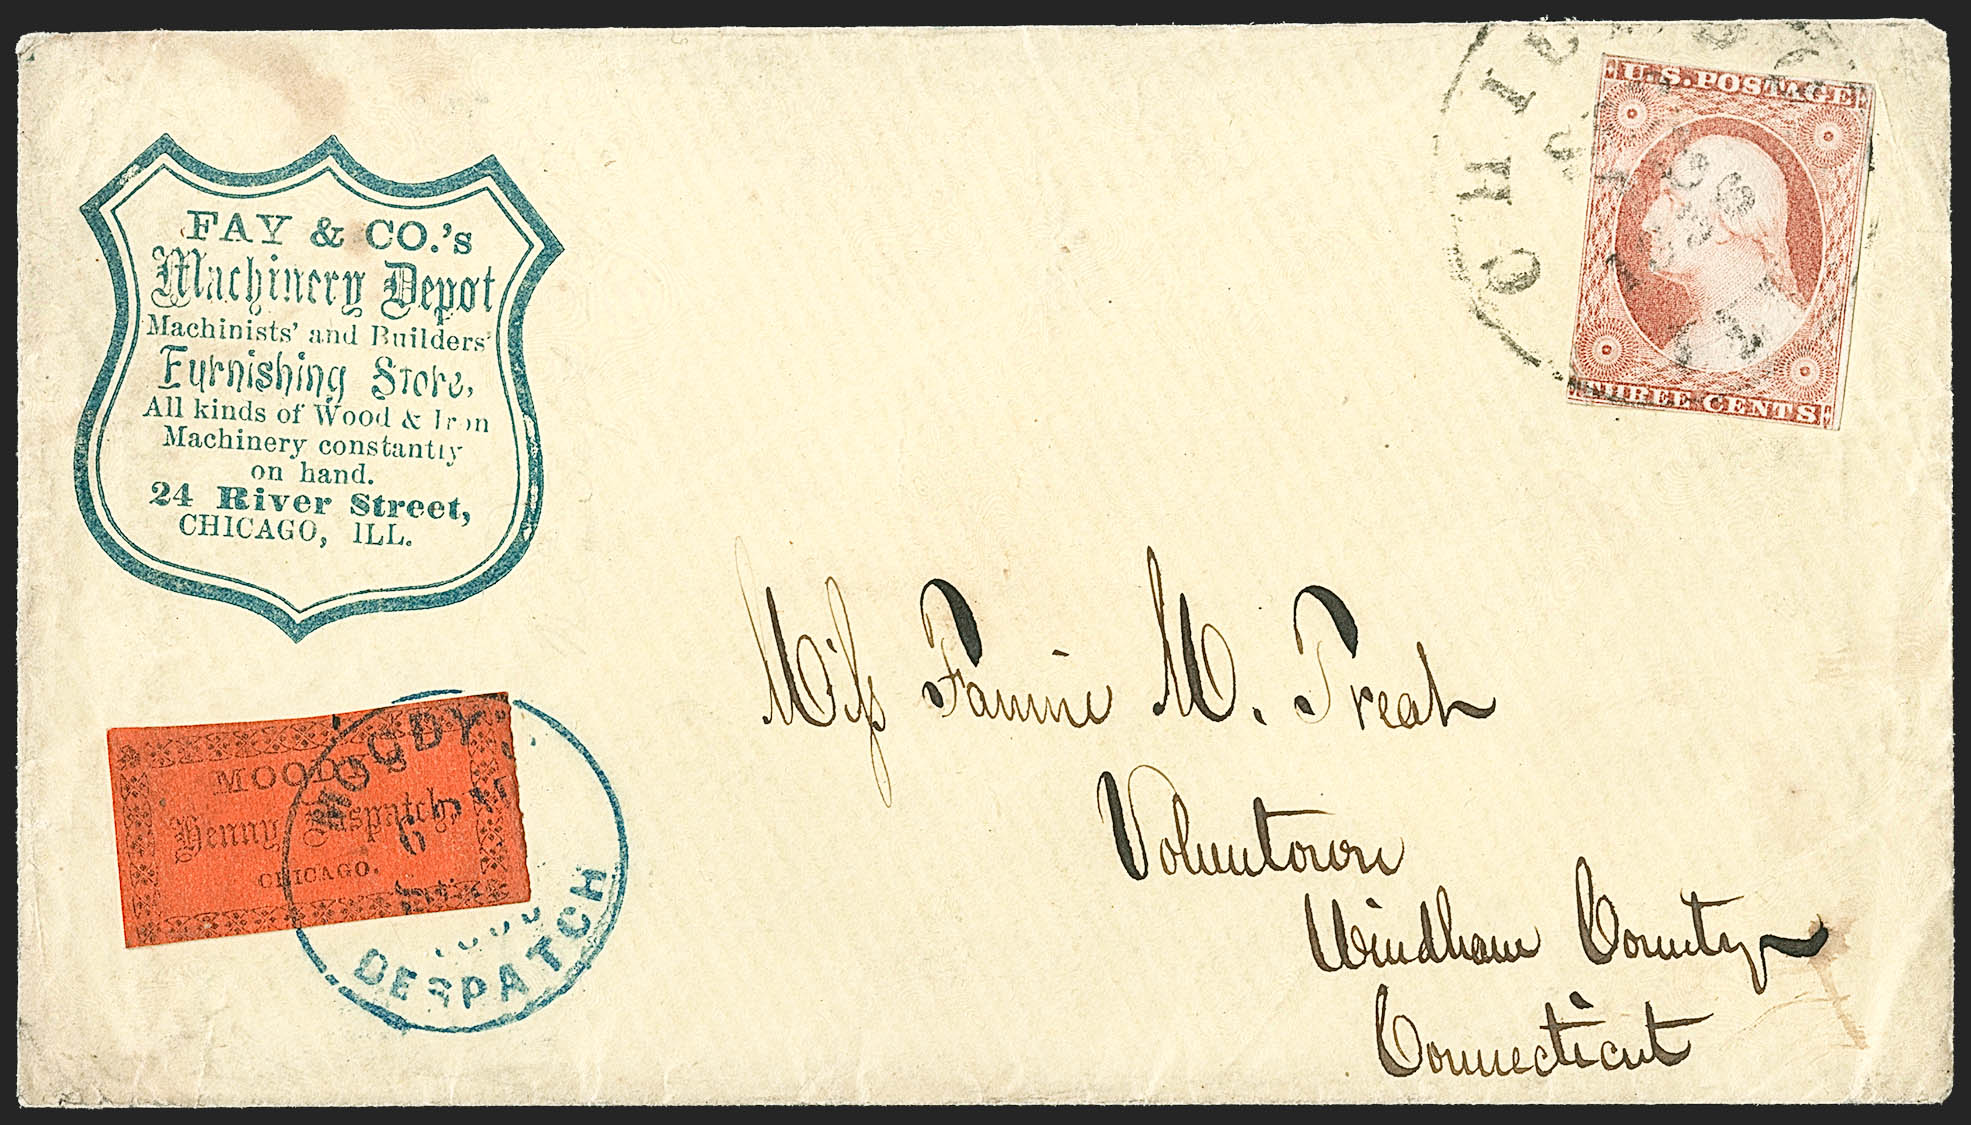 FAY & CO.'s
Machinery Depot
Machinists' and Builders'
Furnishing Store,
All kinds of Wood & Iron
Machinery constantly
on hand.
24 River Street,
CHICAGO, ILL.
U.S. POSTAGE
THREE CENTS
CHICAGO
1856
Miss Fannie M. Treat
Voluntown
Windham County
Connecticut
MOODY'S
Penny Dispatch,
CHICAGO.
MOODY'S
DESPATCH